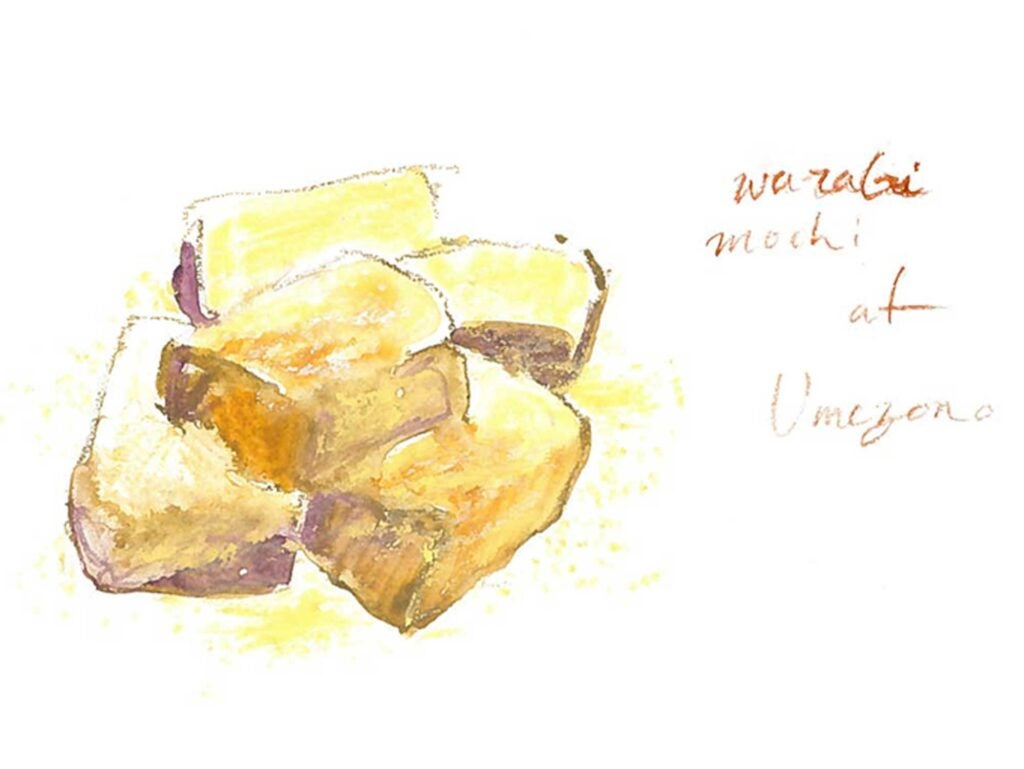 warabi
mochi
at
Umezono